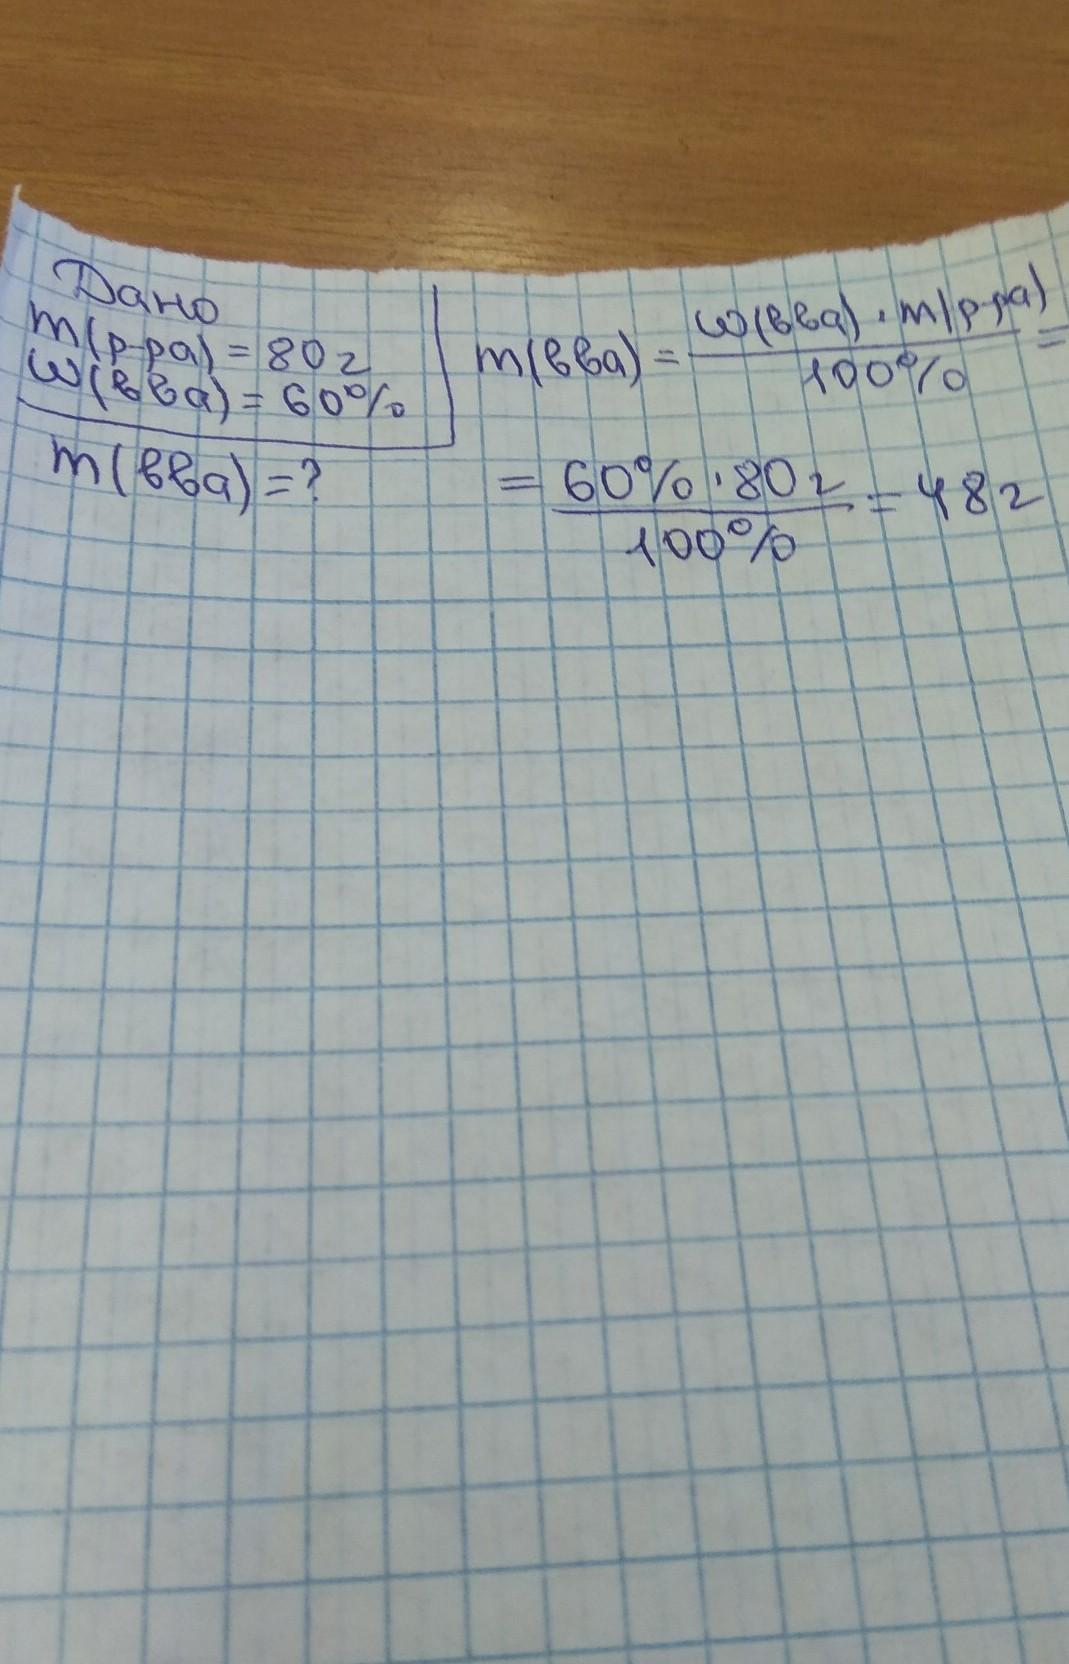 Дано
m(р-ра) = 80 г
ω(вва) = 60%
m(вва) = ?
m(вва) = ω(вва) · m(р-ра) / 100% =
= 60% · 80 г / 100% = 48 г